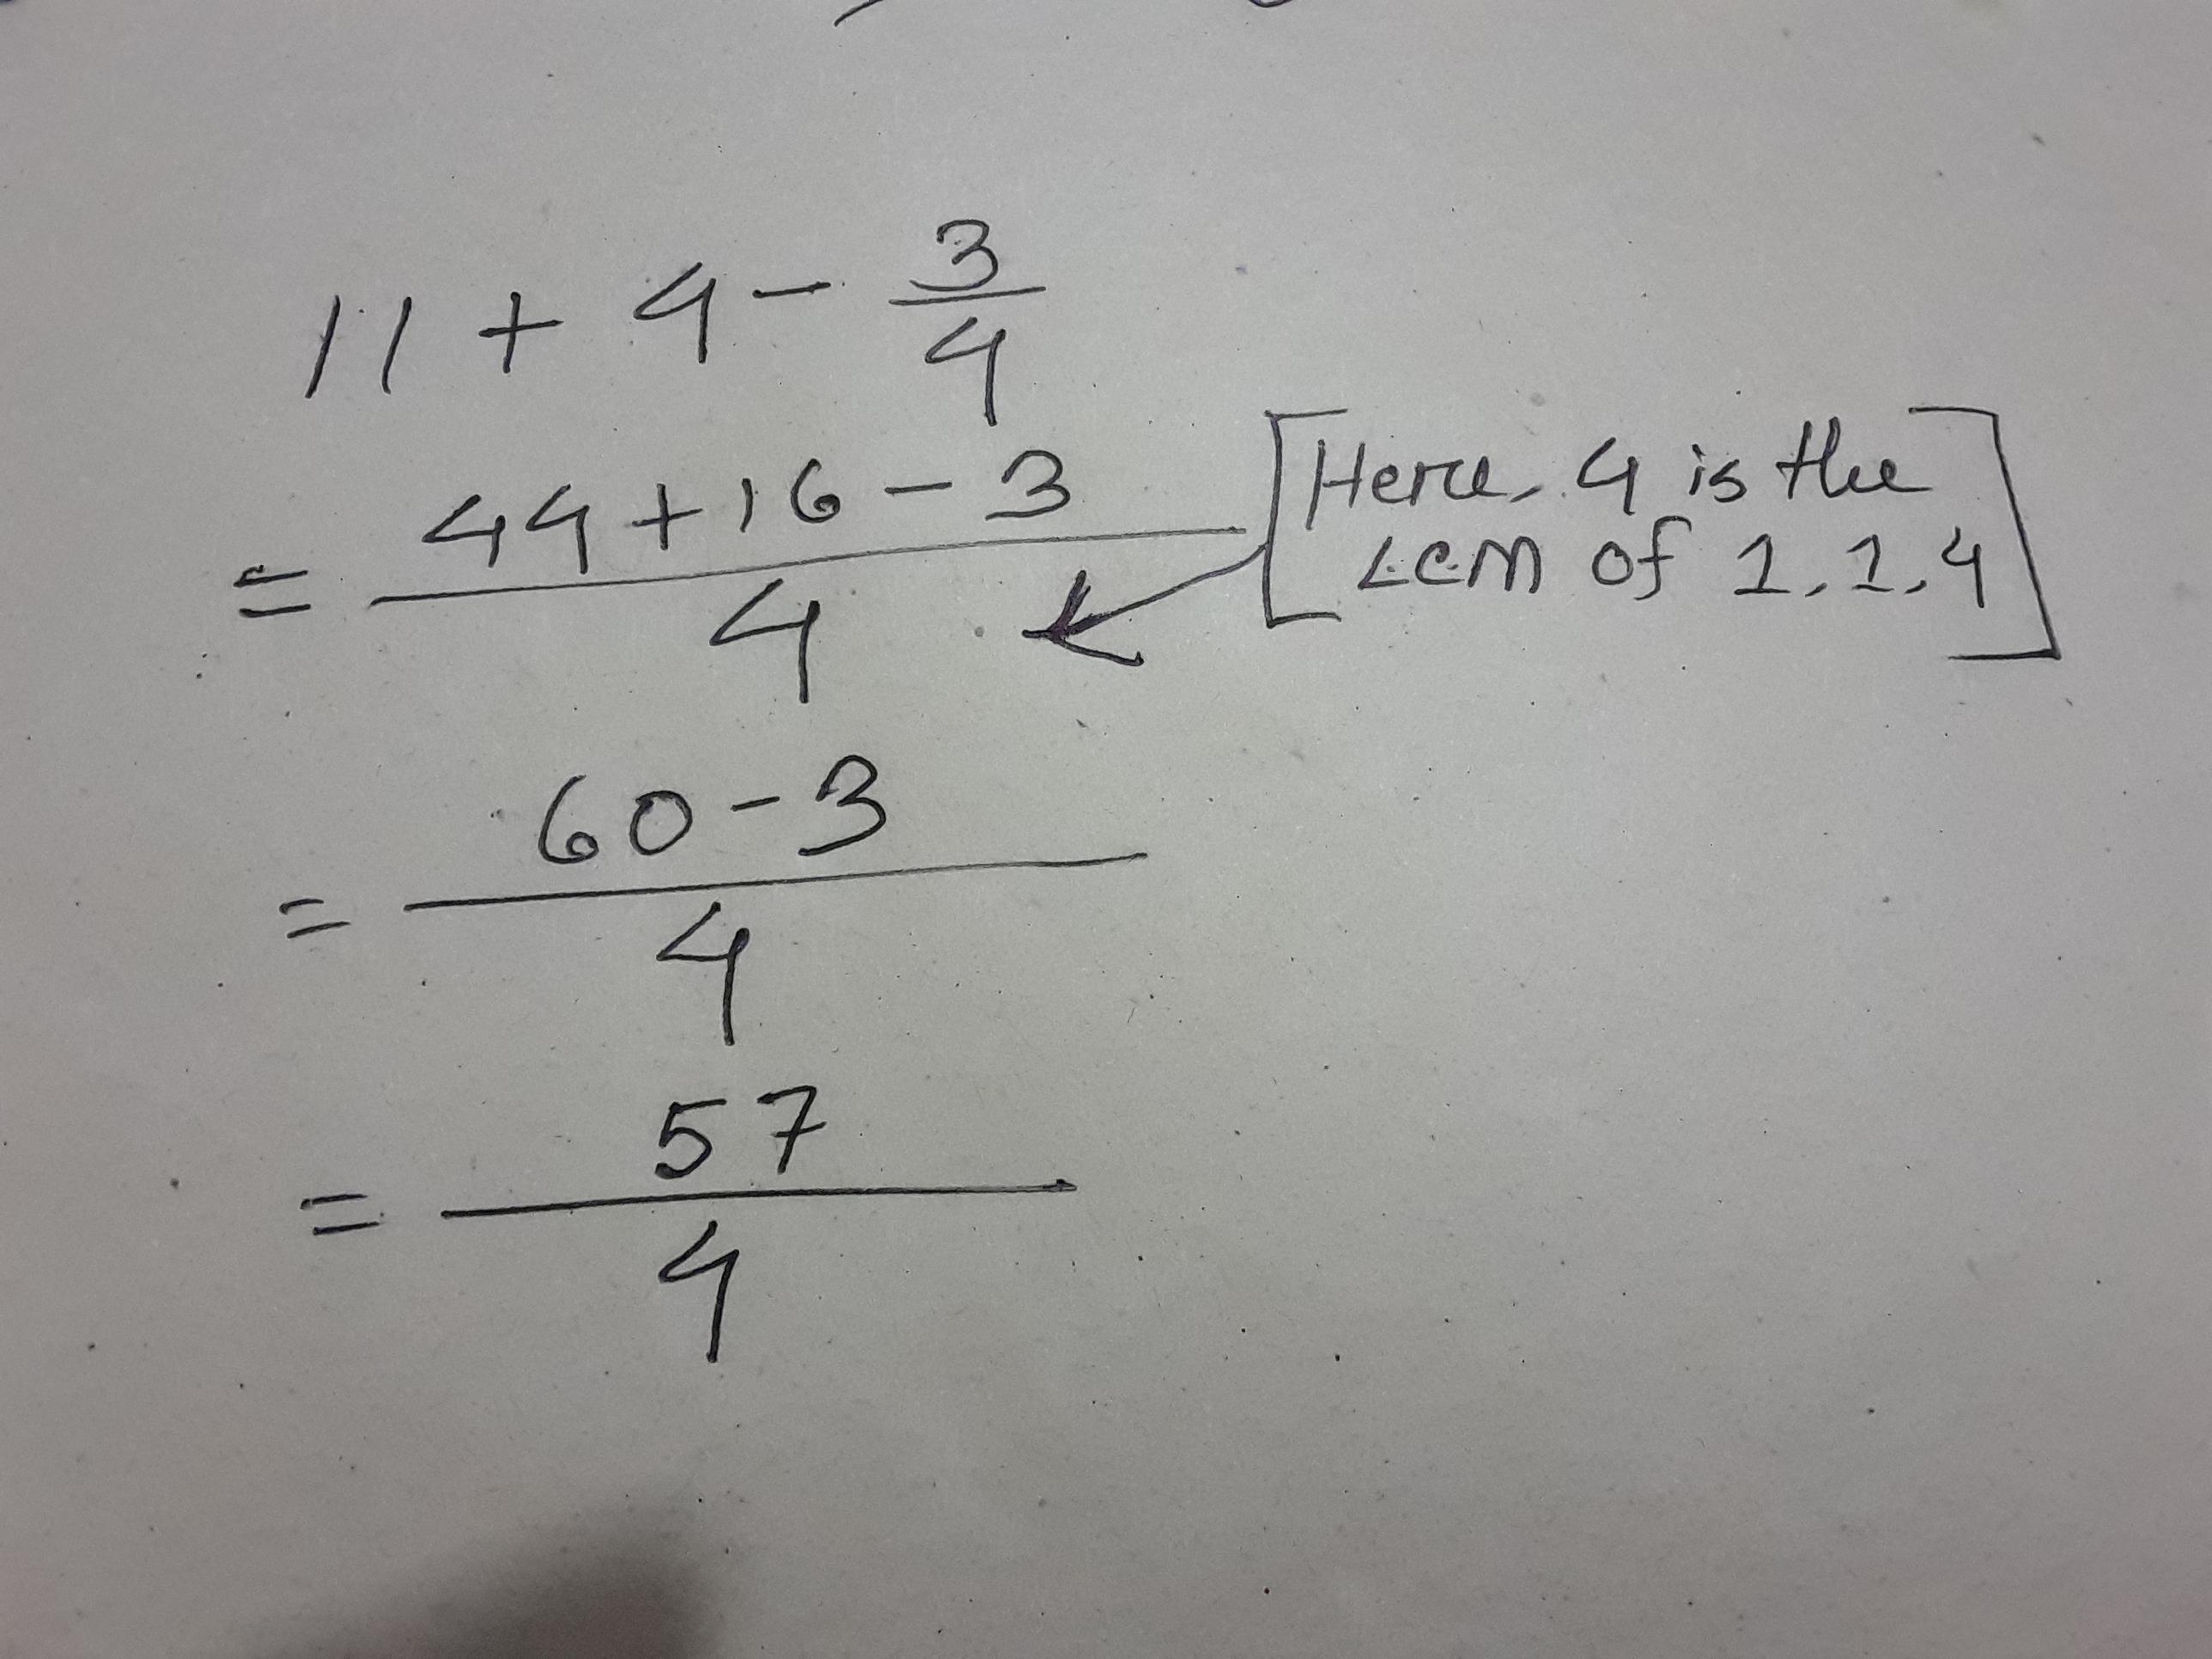 11 + 4 - 3/4
= (44 + 16 - 3)/4
[Here, 4 is the
LCM of 1, 1, 4]
= (60 - 3)/4
= 57/4